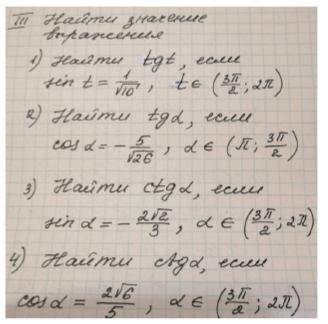 III Найти значение
выражения
1) Найти tgt, если
sin t = 1/√10, t ∈ (3π/2; 2π)
2) Найти tgα, если
cos α = - 5/√26, α ∈ (π; 3π/2)
3) Найти ctgα, если
sin α = - 2√2/3, α ∈ (3π/2; 2π)
4) Найти ctgα, если
cos α = 2√6/5, α ∈ (3π/2; 2π)